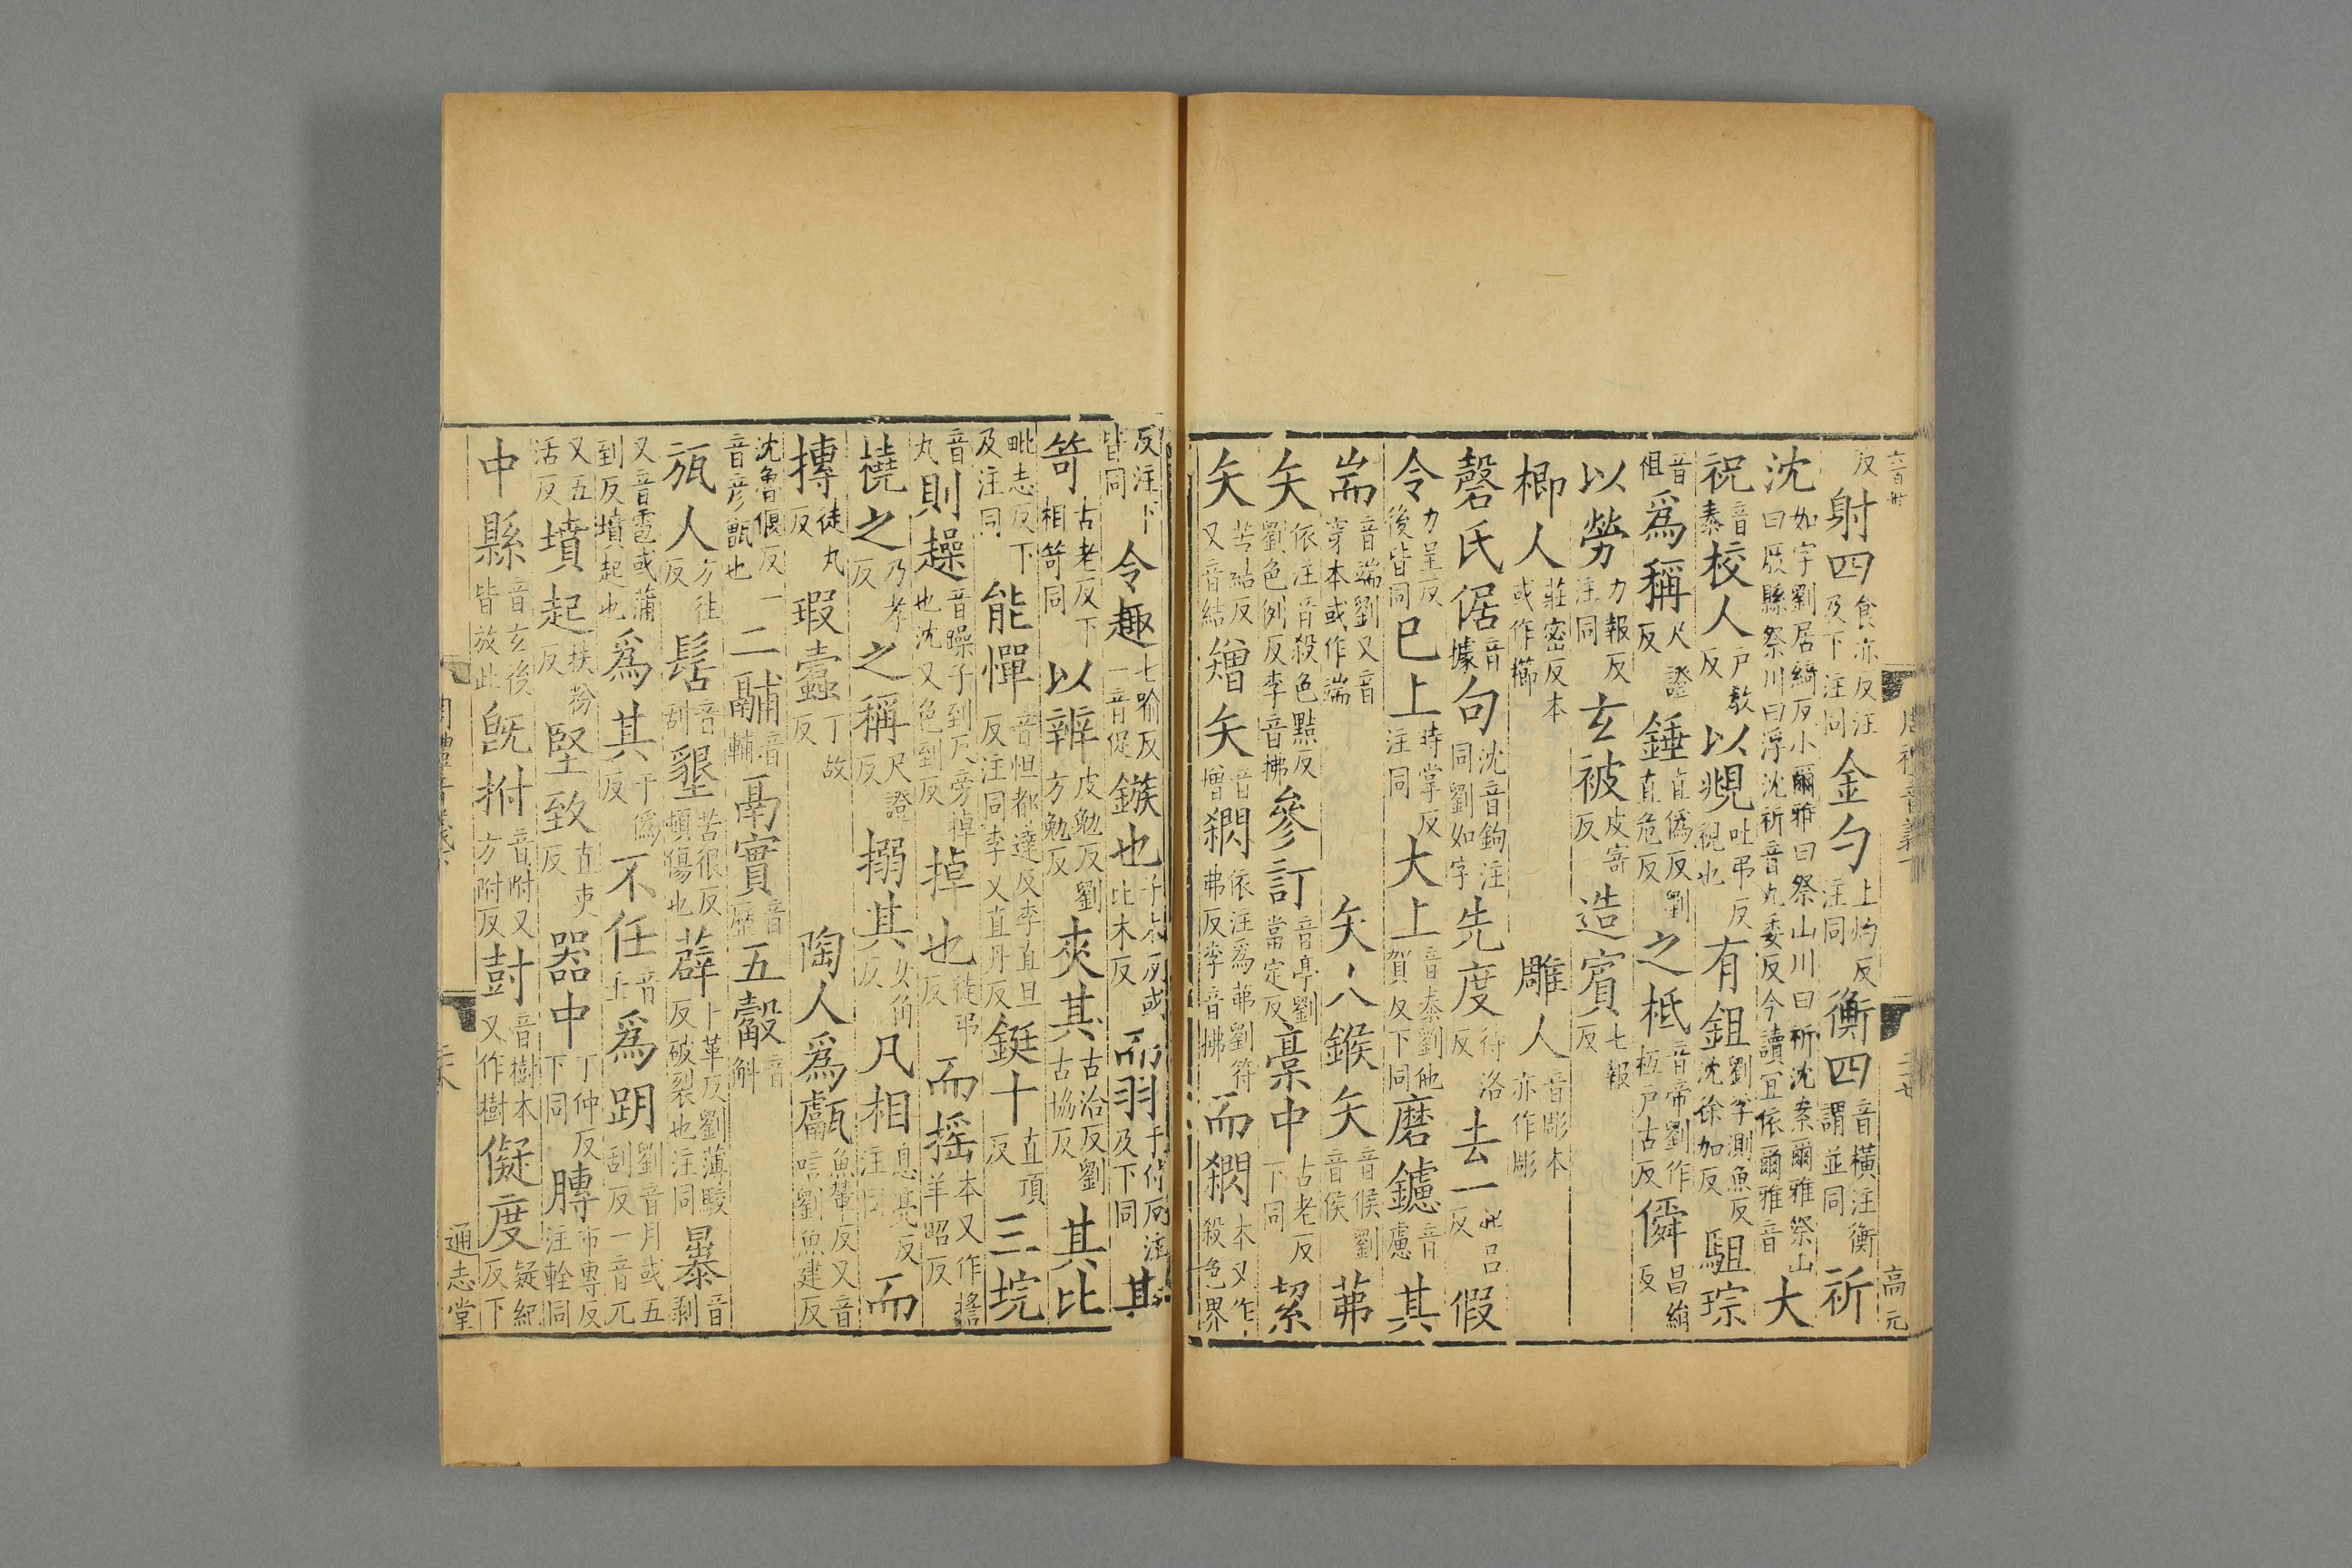 六百卅 周禮音義下 二七 高元
反射四食亦反注及下注同金勺上灼反注同衡四音橫注衡謂並同祈
沈如字劉居綺反小爾雅曰祭山川曰祈沈案爾雅祭山曰庪縣祭川曰浮沈祈音九委反今讀宜依爾雅音大
祝音泰校人戸教反以覜吐弔反視也有鉏劉李測魚反沈徐加反駔琮
音俎爲稱尺證反錘直僞反劉直危反之柢音帝劉作柢戸古反僢昌絹反
以勞力報反注同玄被皮寄反造賓七報反
櫛人莊密反本或作櫛雕人音彫本亦作彫
磬氏倨音據句沈音鉤注同劉如字先度待洛反去一起呂反假
令力呈反後皆同已上時掌反注同大上音泰劉他賀反下同磨鑢音慮其
耑音端劉又音穿本或作端矢人鍭矢音侯劉音候茀
矢依注音殺色黠反劉色例反李音拂參訂音亭劉當定反稾中古老反下同絜
矢苦結反又音結矰矢音增㸕依注爲茀劉符弗反李音拂而㸕本又作殺色界
反注下皆同令趣七喻反一音促鏃也子木反或比木反而羽于付反注及下同其
笴古老反下相笴同以辨皮勉反劉方勉反夾其古洽反劉古協反其比
毗志反下及注同能憚音怛都達反李直旦反注同李又直丹反鋌十直頂反三垸
音丸則趮音躁子到反旁掉也沈又色到反掉也徒弔反而摇本又作搖羊昭反
橈之乃孝反之稱尺證反搦其女角反凡相息亮反注同而
摶徒丸反瑕蠹丁故反陶人爲甗魚輦反又音言劉魚建反
沈魯偃反一音彦甑也二鬴音輔鬲實音歷五㲄音斛
瓬人方往反髺音刮墾苦很反頓傷也薜卜革反劉薄駮反破裂也注同暴音剥
又音雹或蒲到反墳起也爲其于僞反不任音壬爲跀劉音月或五刮反一音兀
又五活反墳起扶粉反堅致直吏反器中丁仲反下同膊市專反注輇同
中縣音玄後皆放此旣拊音附又方附反尌音樹本又作樹儗度疑紀反下
周禮音義下 二八 通志堂